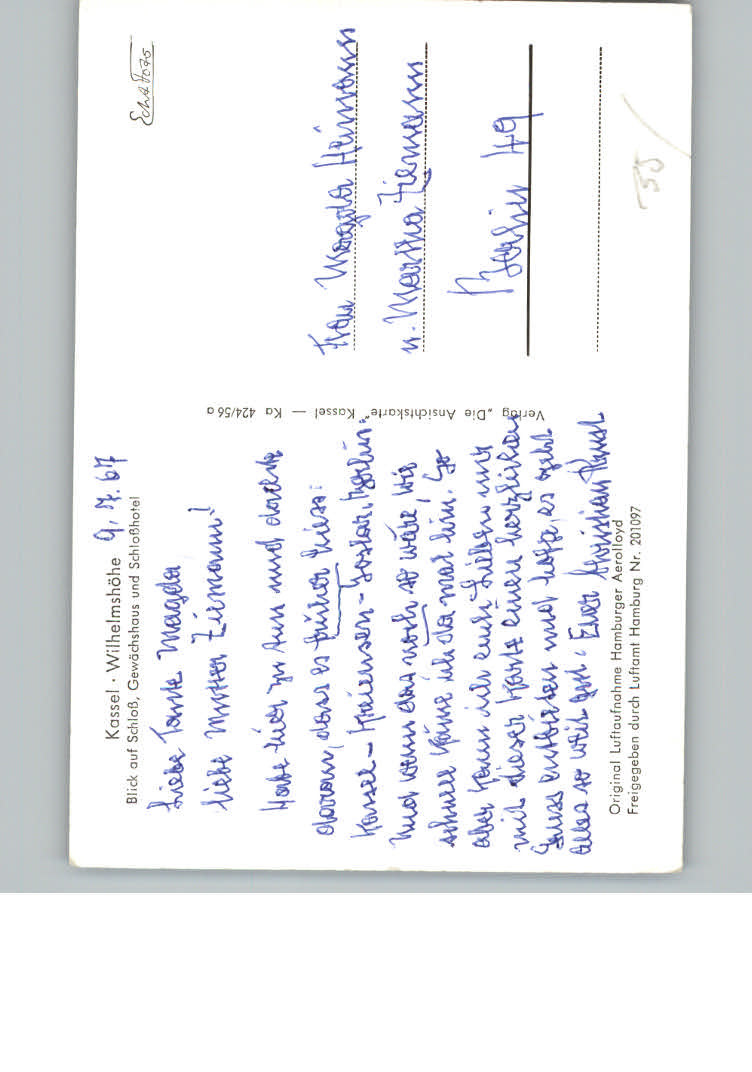 Kassel · Wilhelmshöhe 9.7.67
Blick auf Schloß, Gewächshaus und Schloßhotel
Liebe Tante Magda
liebe Mutter Ziemann!
Habe hier zu tun und denke
daran, dass es früher hiess:
Kassel - Kreiensen - Goslar, Berlin.
Und wenn das noch so wäre, wie
schnell käme ich da mal hin. So
aber kann ich euch Lieben nur
mit dieser Karte einen herzlichen
Gruss entbieten und hoffe, es geht
alles so weit gut. Euer Christian
Original Luftaufnahme Hamburger Aerolloyd
Freigegeben durch Luftamt Hamburg Nr. 201097
Verlag „Die Ansichtskarte" Kassel — Ka 424/56 a
Frau Magda Heimann
u. Martha Ziemann
Berlin 49